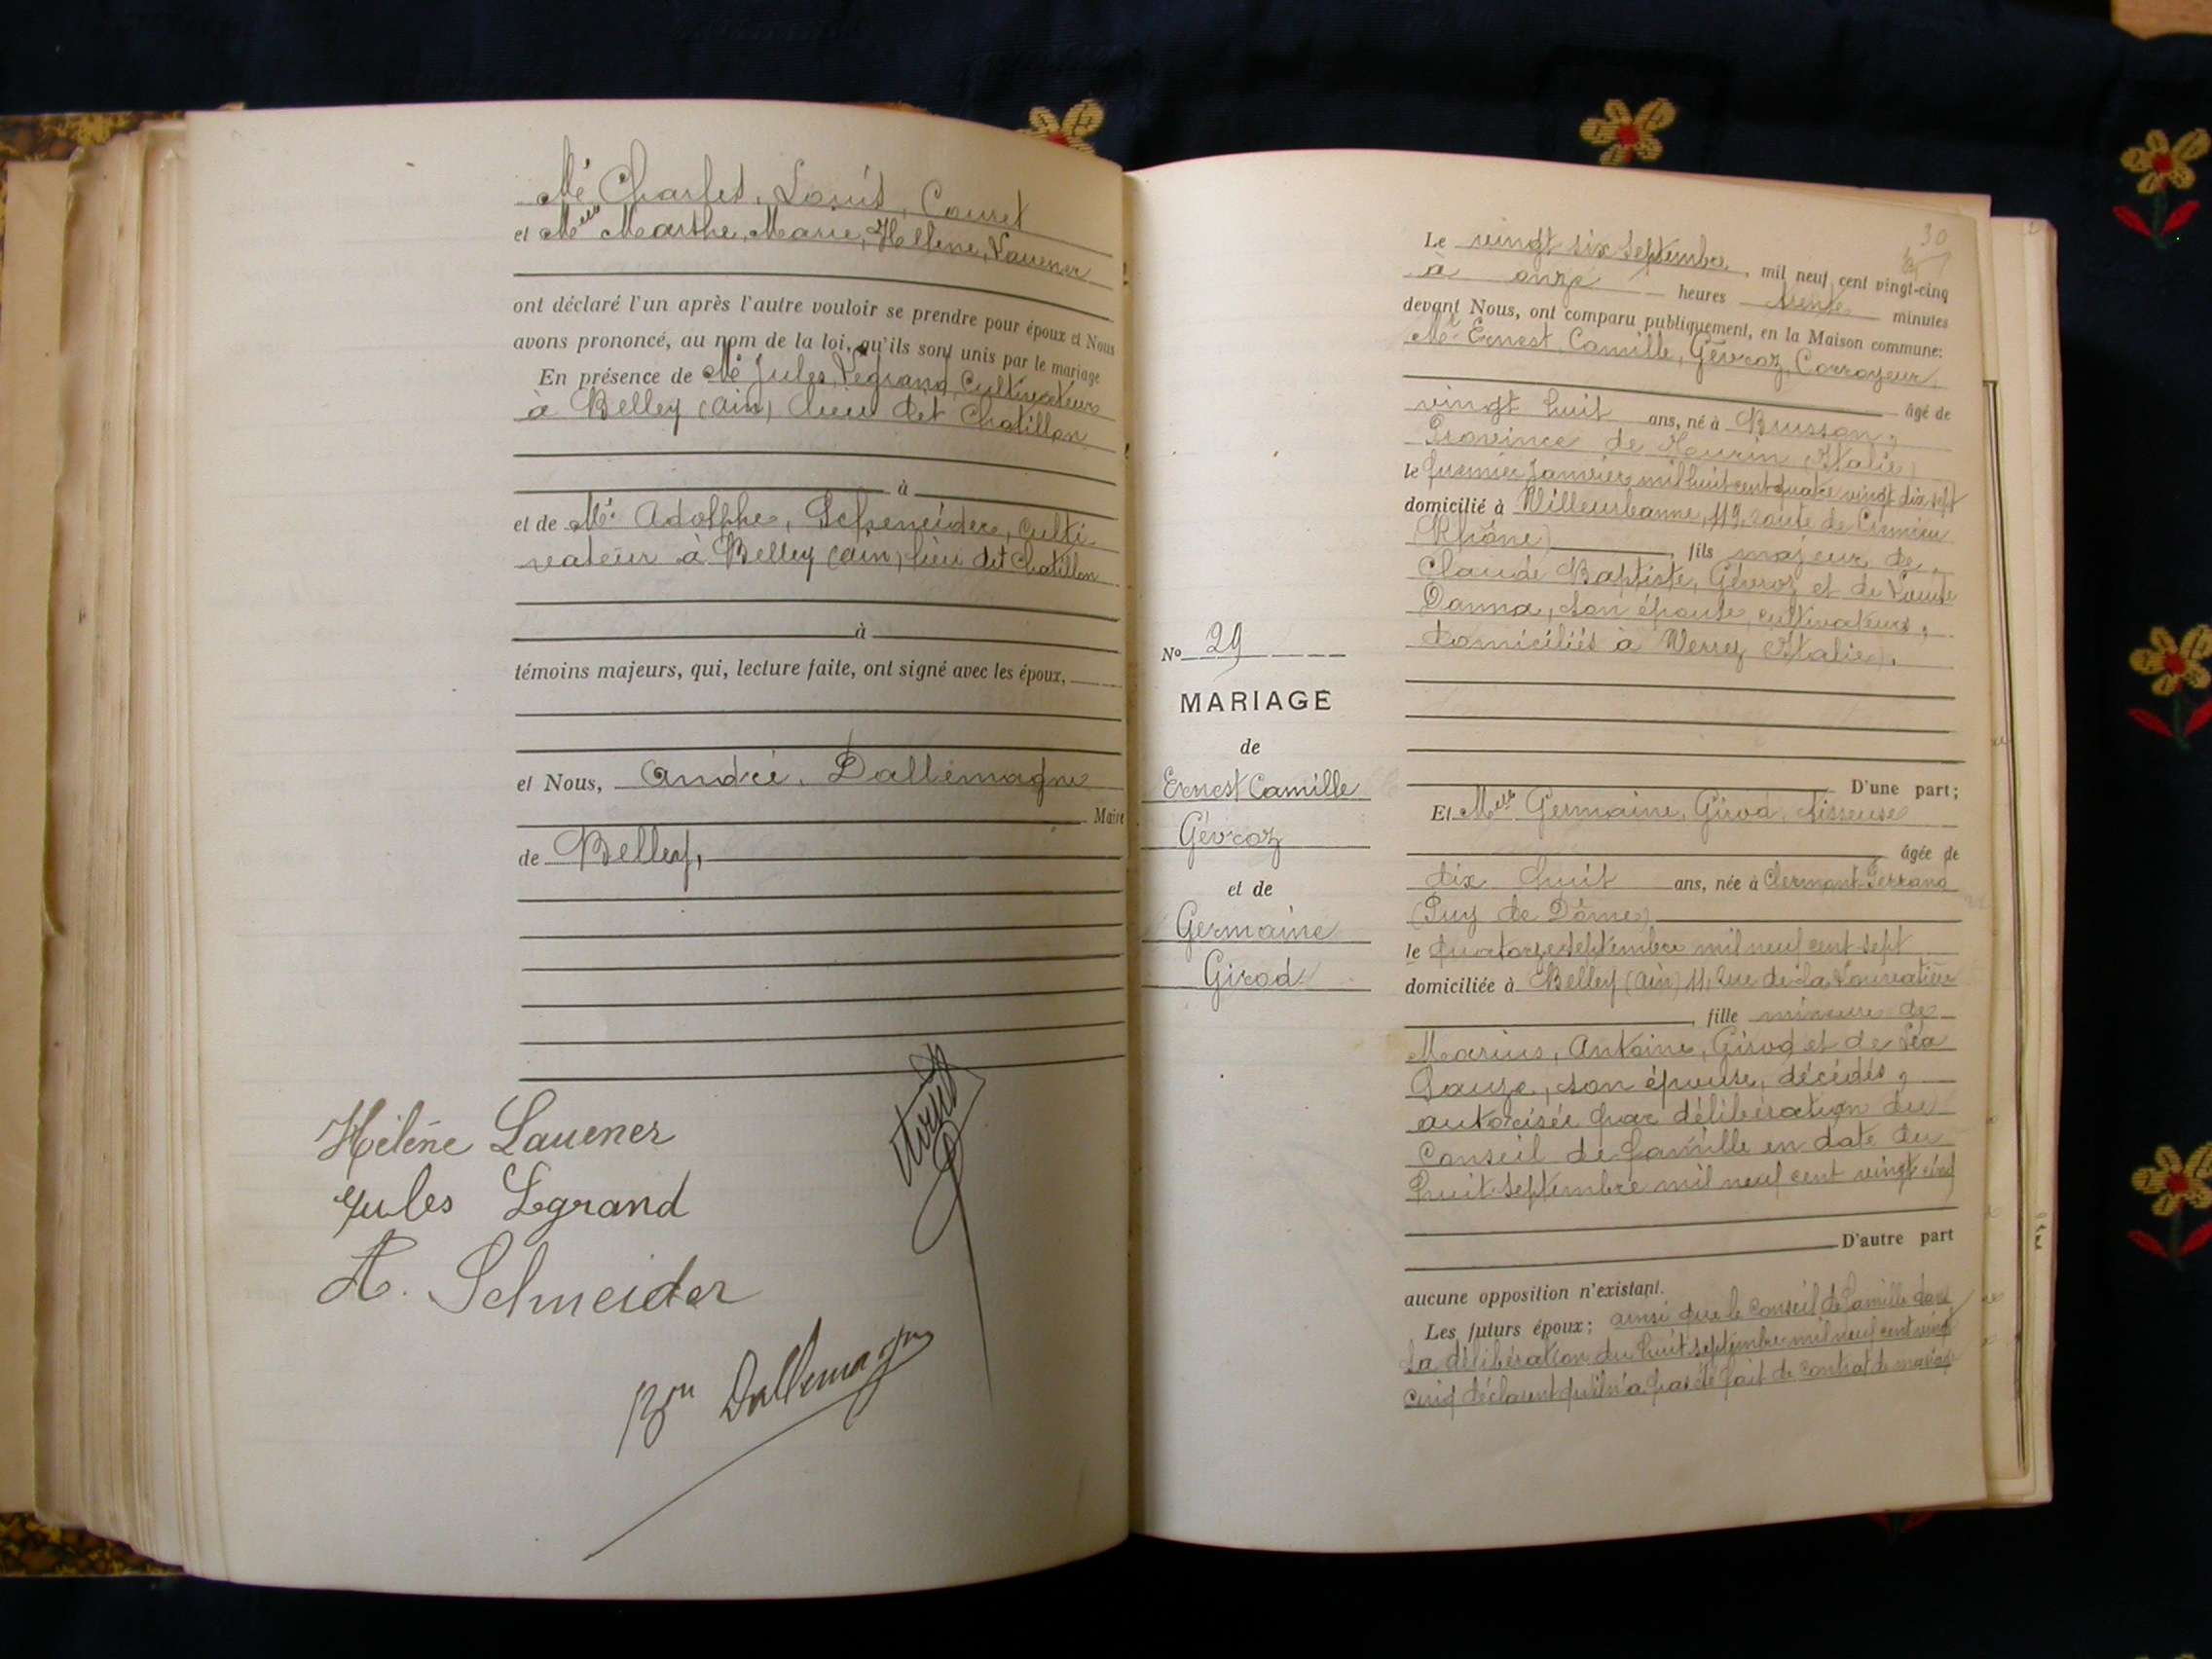 Mr Charles, Louis, Couret
et Melle Marthe, Marie, Hélène, Lauener
ont déclaré l'un après l'autre vouloir se prendre pour époux et Nous
avons prononcé, au nom de la loi, qu'ils sont unis par le mariage
En présence de Mr Jules, Legrand, Cultivateur
à Belley (Ain) lieu dit Chatillon
à
et de Mr Adolphe, Schneider, culti-
vateur à Belley (Ain) lieu dit Chatillon
à
témoins majeurs, qui, lecture faite, ont signé avec les époux,
et Nous, André, Dallemagne
Maire
de Belley,
Hélène Lauener
Jules Legrand
A. Schneider
Bon Dallemagne
30
Le vingt six septembre, mil neuf cent vingt-cinq
à onze heures trente minutes
devant Nous, ont comparu publiquement, en la Maison commune:
Mr Ernest, Camille, Gévroz, Corroyeur,
âgé de
vingt huit ans, né à Brusson,
Province de Turin (Italie)
le premier janvier mil huit cent quatre vingt dix sept
domicilié à Villeurbanne, 119, route de Crémieu
(Rhône), fils majeur de
Claude Baptiste, Gévroz et de Louise
Danna, son épouse, cultivateurs,
domiciliés à Verrez (Italie).
D'une part;
Et Melle Germaine, Girod, tisseuse
âgée de
dix huit ans, née à Clermont-Ferrand
(Puy de Dôme)
le quatorze septembre mil neuf cent sept
domiciliée à Belley (Ain) 11, rue de la
, fille mineure de
Marius, Antoine, Girod et de Léa
Gauze, son épouse, décédés,
autorisée par délibération du
Conseil de famille en date du
huit septembre mil neuf cent vingt cinq
D'autre part
aucune opposition n'existant.
Les futurs époux; ainsi que le Conseil de famille dans
la délibération du huit septembre mil neuf cent vingt
cinq déclarent qu'il n'a pas été fait de contrat de mariage
No 29
MARIAGE
de
Ernest Camille
Gévroz
et de
Germaine
Girod